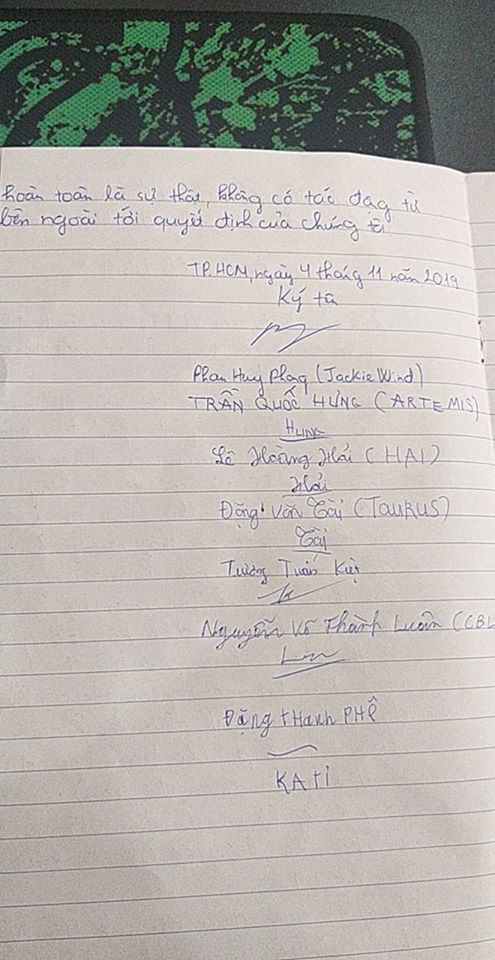 hoàn toàn là sự thật, không có tác động từ
bên ngoài tới quyết định của chúng tôi
TP.HCM, ngày 4 tháng 11 năm 2019
Ký tên
Phan Huy Phong (Jackie Wind)
TRẦN QUỐC HƯNG (ARTEMIS)
HUNG
Lê Hoàng Hải (HAI)
Hải
Đặng Văn Tài (TAURUS)
Tài
Tương Tuấn Kiệt
Nguyễn Võ Thành Luân (CBL
Đặng tHanh PHÊ
KATI